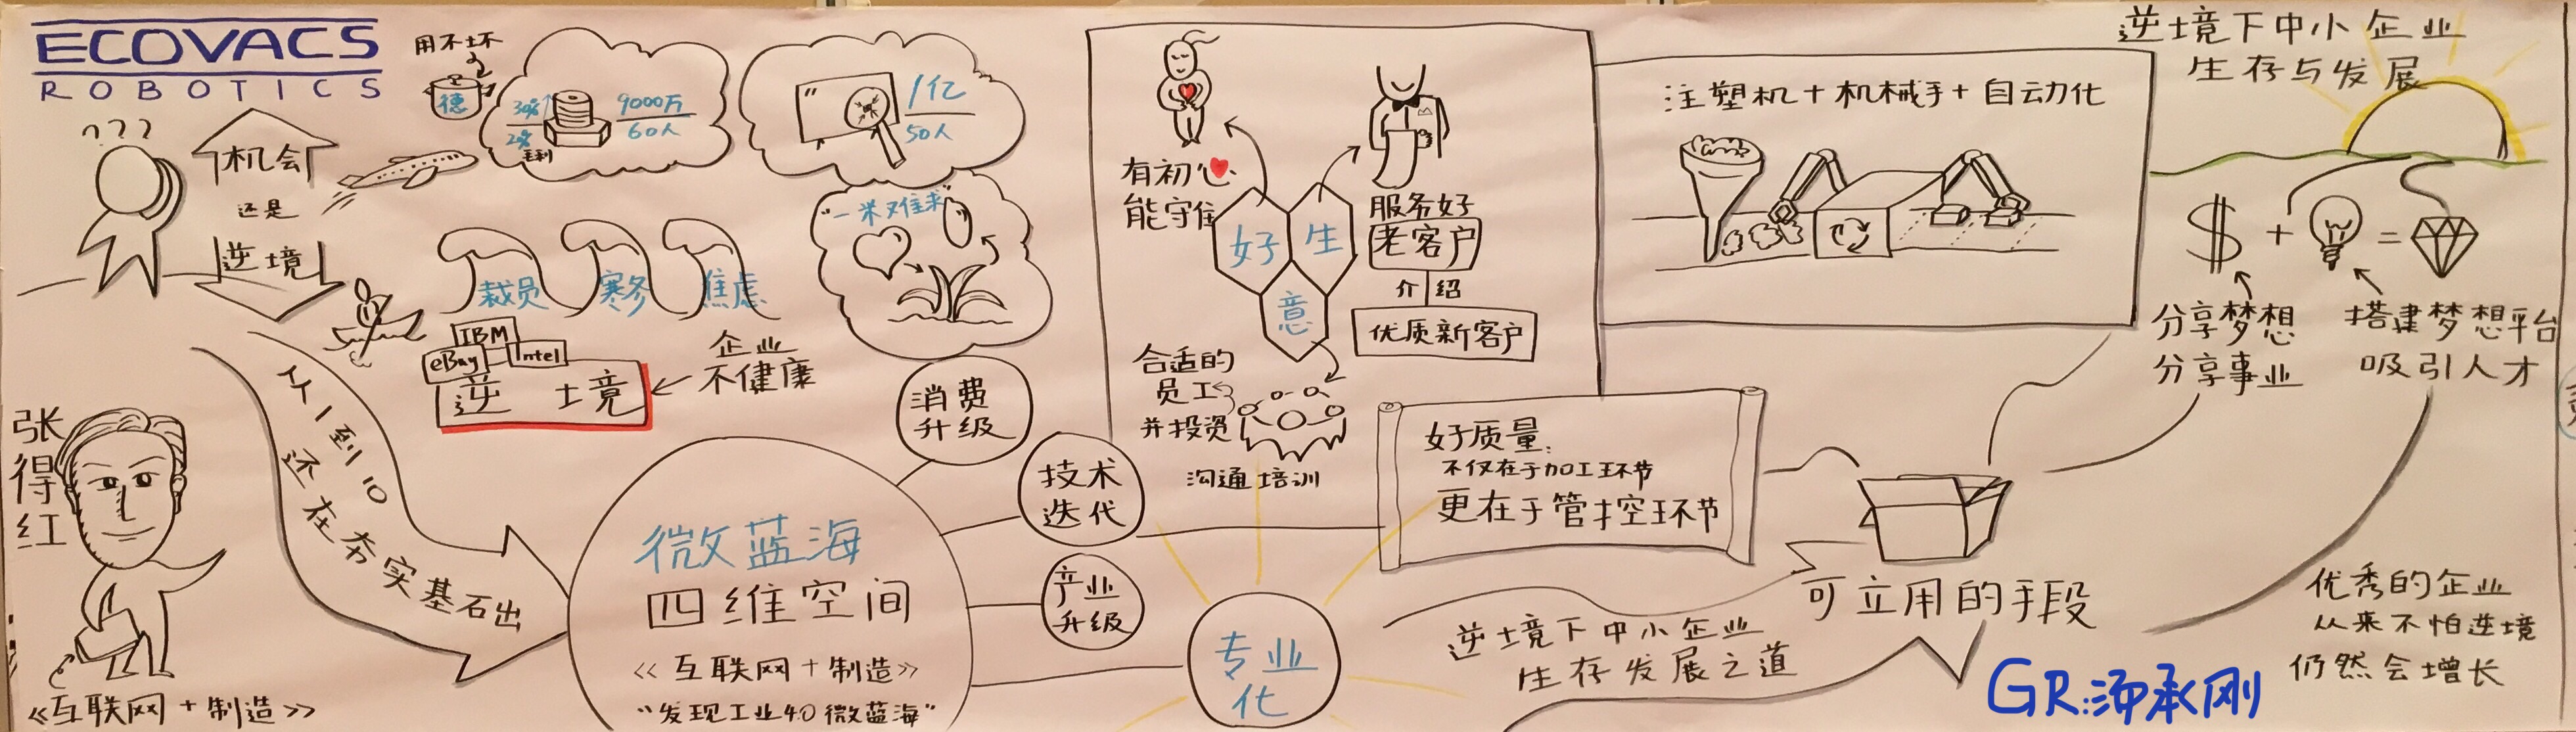 ECOVACS
ROBOTICS
???
机会
还是
逆境
用不坏
德
30%↑
2%
毛利
9000万
60人
1亿
50人
"一米难求"
裁员
寒冬
焦虑
IBM
eBay
Intel
逆境
企业
不健康
张得红
《互联网+制造》
从1到10
还在夯实基石出
微蓝海
四维空间
《互联网+制造》
"发现工业4.0微蓝海"
消费
升级
技术
迭代
产业
升级
专业
化
有初心
能守住
好
生
意
服务好
老客户
介绍
优质新客户
合适的
员工
并投资
沟通培训
注塑机+机械手+自动化
好质量:
不仅在于加工环节
更在于管控环节
可立用的手段
逆境下中小企业
生存发展之道
逆境下中小企业
生存与发展
$ + =
分享梦想
分享事业
搭建梦想平台
吸引人才
优秀的企业
从来不怕逆境
仍然会增长
GR:汤承刚